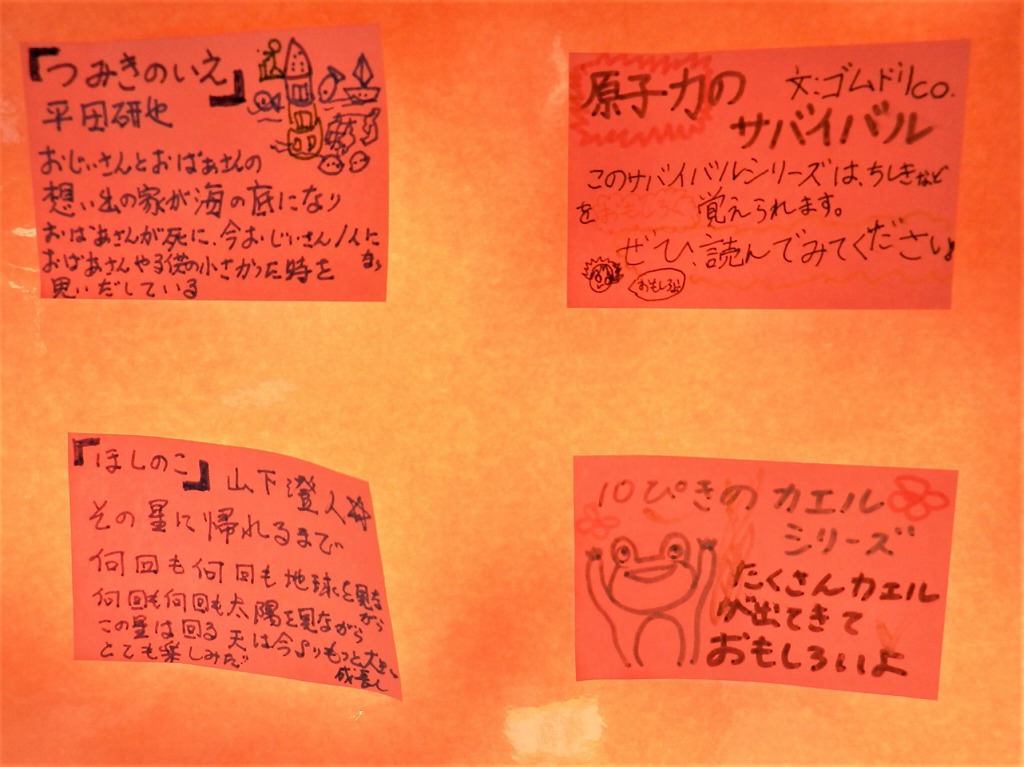 『つみきのいえ』
平田研也
おじぃさんとおばぁさんの
想い出の家が海の底になり
おばあさんが死に、今おじぃさん1人に
なり
おばあさんや子供の小さかった時を
思いだしている
原子力の
文:ゴムドリco.
サバイバル
このサバイバルシリーズは、ちしきなど
をおもしろく覚えられます。
ぜひ、読んでみてください
おもしろい
『ほしのこ』
山下澄人
その星に帰れるまで
何回も何回も地球を見ながら
何回も何回も太陽を見ながら
この星は回る 天は今よりもっと大きく
成長し
とても楽しみだ
10ぴきのカエル
シリーズ
たくさんカエル
が出てきて
おもしろいよ